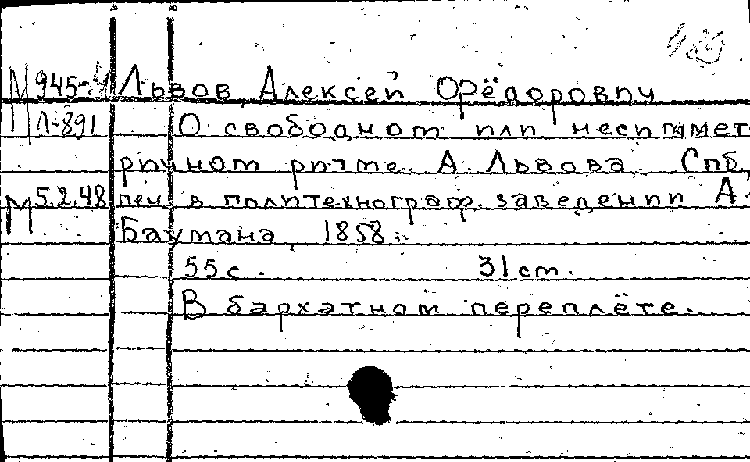 М 945-4 Львов, Алексей Фёдорович
Л-891 О свободном или несиммет
ричном ритме А. Львова. Спб,
М 5.2.48 печ. в политехнограф. заведении А.
Баумана, 1858.
55с. 31cm.
В бархатном переплёте.